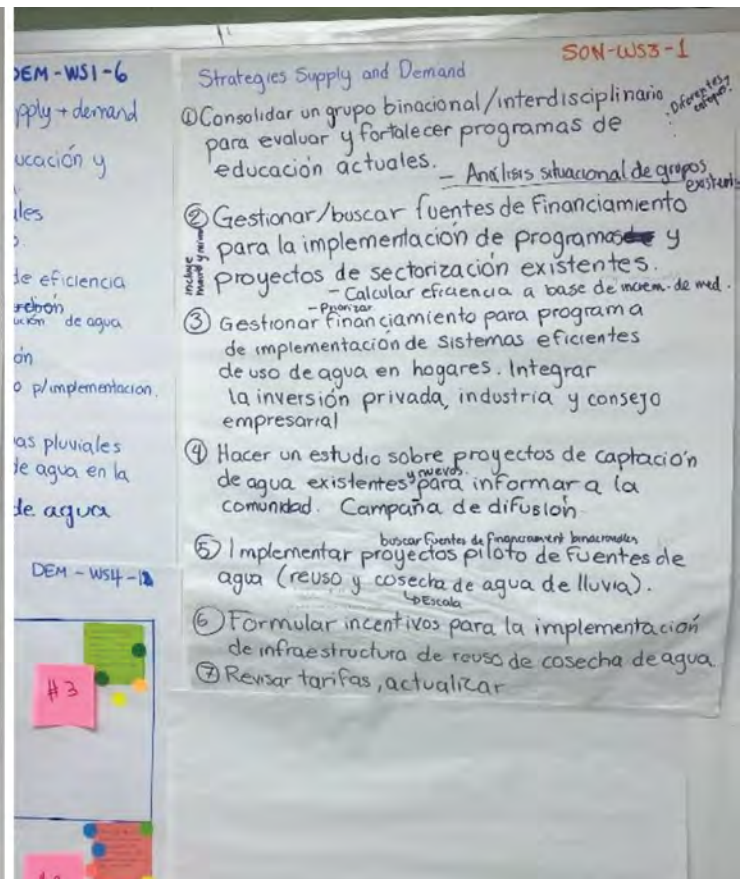 DEM-WS1-6
pply + demand
ucación y
les
de eficiencia
ución de agua
ón
o p/implementacion.
as pluviales
de agua en la
de agua
DEM - WS4-1
#3
SON-WS3-1
Strategies Supply and Demand
① Consolidar un grupo binacional/interdisciplinario
Diferentes enfoques?
para evaluar y fortalecer programas de
educación actuales.
- Análisis situacional de grupos existent
② Gestionar/buscar fuentes de financiamiento
para la implementación de programas y
proyectos de sectorización existentes.
- Calcular eficiencia a base de increm. de med.
- Priorizar
③ Gestionar financiamiento para programa
de implementacion de sistemas eficientes
de uso de agua en hogares. Integrar
la inversión privada, industria y consejo
empresarial
④ Hacer un estudio sobre proyectos de captación
de agua existentes y nuevos. para informar a la
comunidad. Campaña de difusión
buscar fuentes de financiament binacionales
⑤ Implementar proyectos piloto de fuentes de
agua (reuso y cosecha de agua de lluvia).
Escala
⑥ Formular incentivos para la implementación
de infraestructura de reuso de cosecha de agua
⑦ Revisar tarifas, actualizar